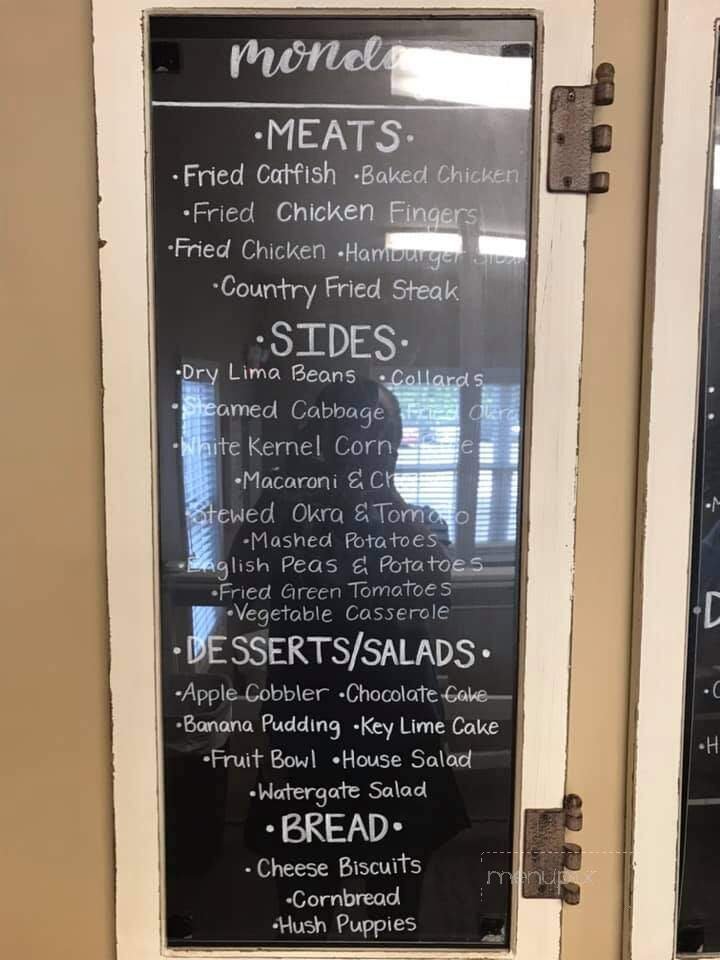 monda
•MEATS•
•Fried Catfish •Baked Chicken
•Fried Chicken Fingers
•Fried Chicken •Hamburger
•Country Fried Steak
•SIDES•
•Dry Lima Beans •Collards
•Steamed Cabbage •Fried Okra
•White Kernel Corn
•Macaroni & Ch
•Stewed Okra & Tomato
•Mashed Potatoes
•English Peas & Potatoes
•Fried Green Tomatoes
•Vegetable Casserole
•DESSERTS/SALADS•
•Apple Cobbler •Chocolate Cake
•Banana Pudding •Key Lime Cake
•Fruit Bowl •House Salad
•Watergate Salad
•BREAD•
•Cheese Biscuits
•Cornbread
•Hush Puppies
menupix